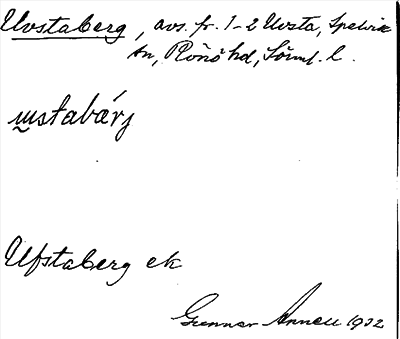 Uvstaberg, avs. fr. 1-2 Uvsta, Spelvik
sn, Rönö hd, Sörml. l.
ɯstabárj
Ufstaberg ek
Gunnar Annell 1932